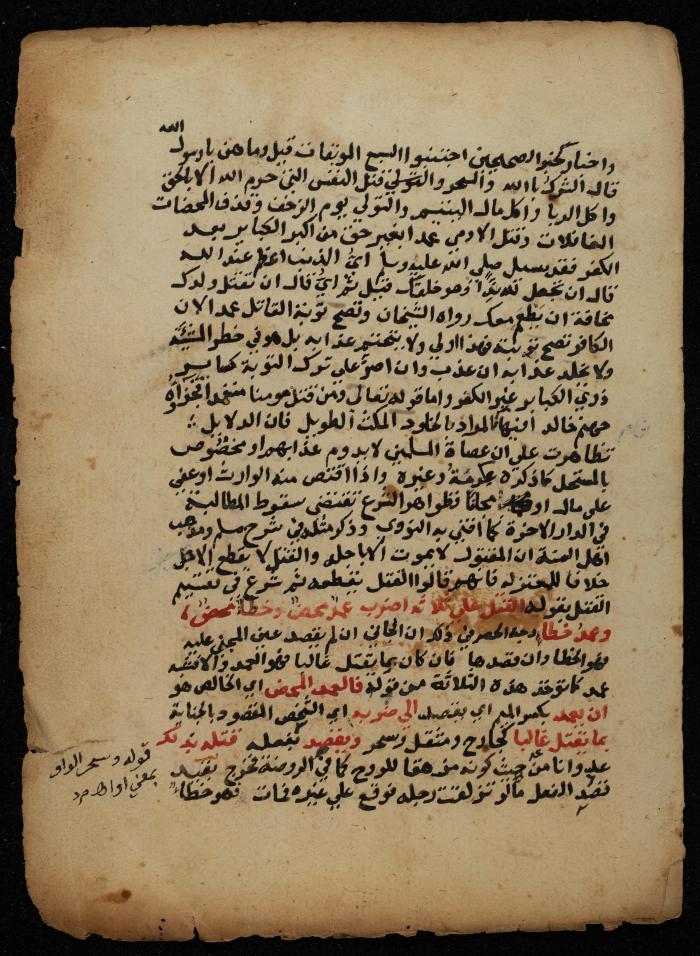 الله
واخبار كخبر الصحيحين اجتنبوا السبع الموبقات قيل وما هن يا رسول
قال الشرك بالله والسحر والتولي قتل النفس التي حرم الله الا بالحق
واكل الربا واكل مال اليتيم والتولي يوم الزحف وقذف المحصنات
الغافلات وقتل الادمي عمدا بغير حق من اكبر الكباير بعد
الكفر فقد سيل صلى الله عليه وسلم اي الذنب اعظم عند الله
قال ان تجعل لله ندا وهو خلقك قيل ثم اي قال ان تقتل ولدك
مخافة ان يطعم معك رواه الشيخان وتصح توبة القاتل عمدا لان
الكافر تصح توبته فهذا اولى ولا يتحتم عذابه بل هو في خطر المشيئة
ولا يخلد عذابه ان عذب وان اصر على ترك التوبة كساير
ذوي الكباير غير الكفر واما قوله تعالى ومن يقتل مومنا متعمدا فجزاؤه
جهنم خالدا فيها فالمراد بالخلود المكث الطويل فان الدلايل
تظاهرت على ان عصاة المسلمين لا يدوم عذابهم او مخصوص
بالمستحل كما ذكره عكرمة وغيره واذا اقتص منه الوارث او عفى
على مال او مجانا فظواهر الشرع تقتضي سقوط المطالبة
في الدار الاخرة كما افتى به النووي وذكر مثله في شرح مسلم ومذهب
اهل السنة ان المقتول لا يموت الا باجله والقتل لا يقطع الاجل
خلافا للمعتزله فانهم قالوا القتل يقطعه ثم شرع في تقسيم
القتل بقوله القتل على ثلاثه اضرب عمد محض وخطا محض
وعمد خطا وجه الحصر في ذلك ان الجاني ان لم يقصد عين المجني عليه
فهو الخطا وان قصدها فان كان بما يقتل غالبا فهو العمد والا فشبه
عمد كما توخذ هذه الثلاثة من قوله فالعمد المحض اي الخالص هو
ان يعمد بكسر الميم اي يقصد الى ضربه اي الشخص المقصود بالجناية
بما يقتل غالبا كجارح ومثقل وسحر ويقصد بفعله قتله بذلك
عدوانا من حيث كونه مزهقا للروح كما في الروضة فخرج بقيد
قصد الفعل ما لو زلقت رجله فوقع على غيره فمات فهو خطا
قوله وسحر الواو
بمعنى او